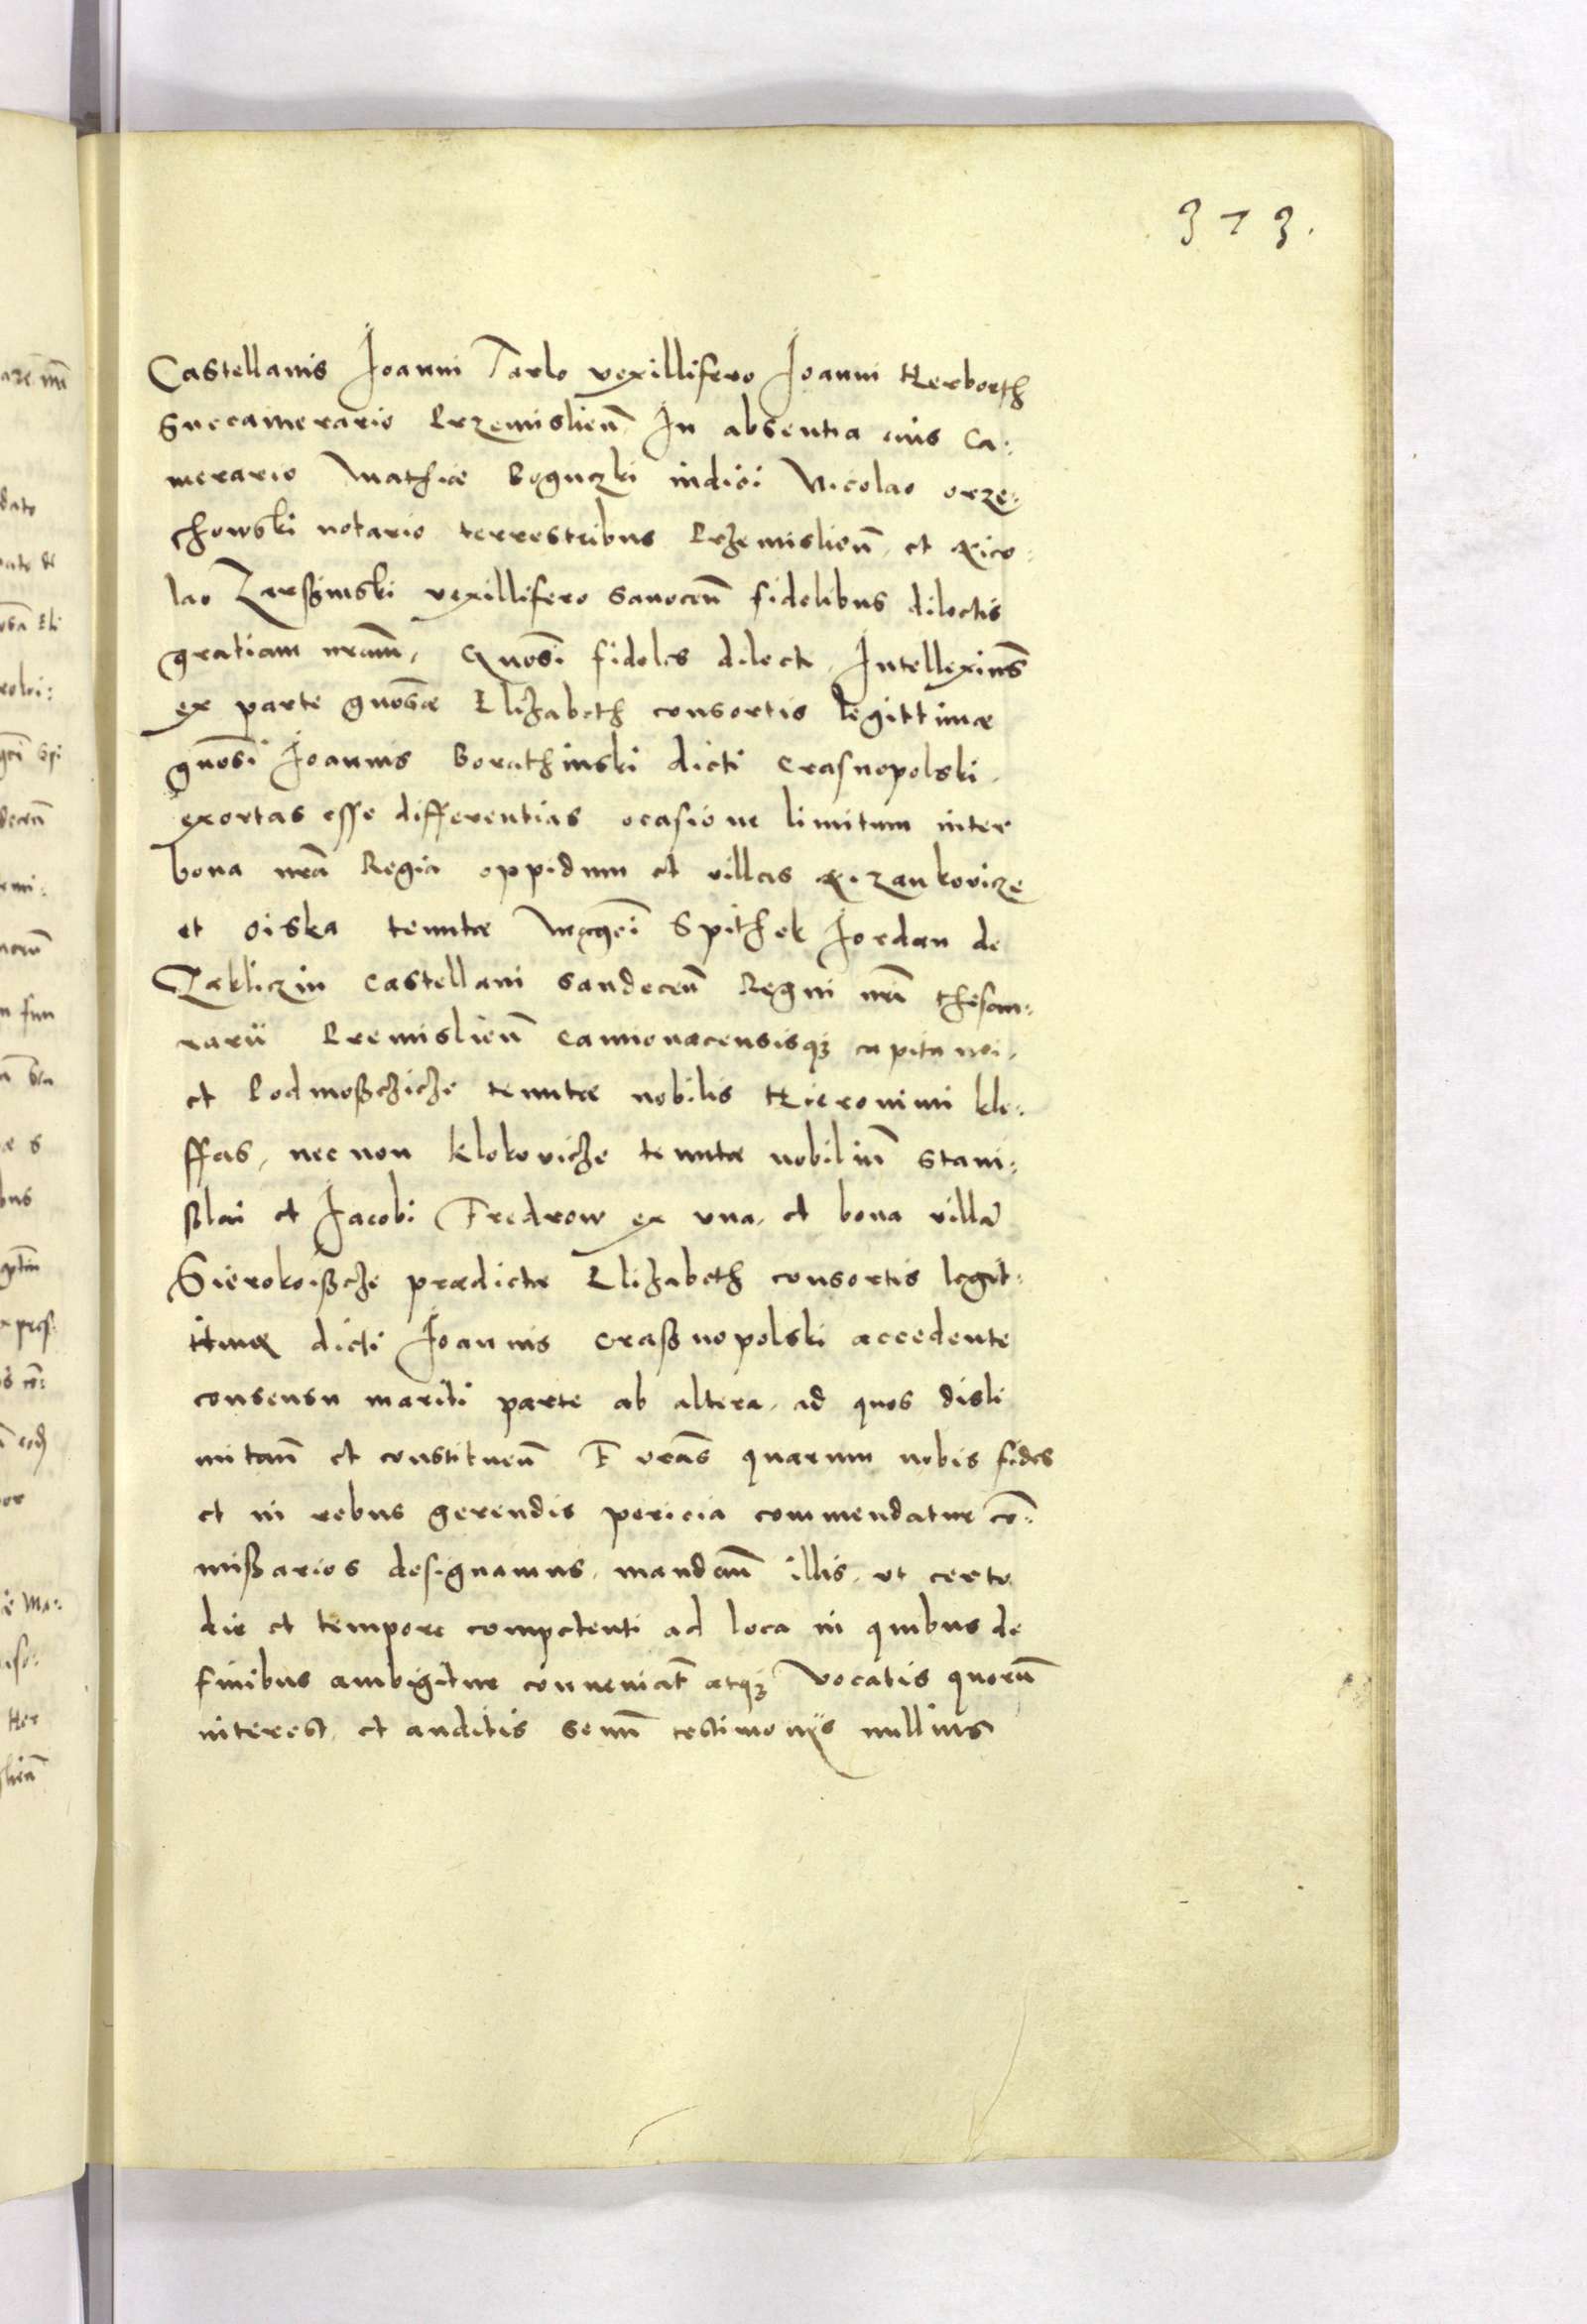 373.
Castellanis Joanni Tarlo vexillifero Joanni Herborth
Succamerario Przemislieñ In absentia eius Ca:
merario Mathiæ Boguczki iudici Nicolao orze:
chowski notario terrestribus Przemislieñ et Nico:
lao Zarßinski vexillifero Sanoceñ fidelibus dilectis
gratiam nr̃am, Gnosi fideles dilecti, Intelleximus
ex parte gnosæ Elizabeth consortis legittimæ
gnosi Joannis Borathinski dicti Crasnopolski
exortas esse differentias ocasione limitum inter
bona nr̃a Regia oppidum et villas Nizankovicze
et Siska tenutæ Mag̃ci Spithek Jordan de
Zakliczin Castellani Sandeceñ Regni nr̃i thesau:
rarii Premislieñ Camionacensisq capitanei,
et Podmoßchiche tenutæ nobilis Hieronimi kle:
ffas, nec non klokoviche tenutæ nobiliũ Stani:
ßlai et Jacobi Fredrow ex vna, et bona villã
Sierokoißche prædictæ Elizabeth consortis legit:
timæ dicti Joannis Craßnopolski accedente
consensu mariti parte ab altera, ad quos disli
mitañ et constitueñ F vras quarum nobis fides
et in rebus gerendis pericia commendatur co:
mißarios designamus, mandañ illis, vt certo
die et tempore competenti ad loca in quibus de
finibus ambigitur conveniat atq vocatis quorũ
interest, et auditis senũ testimoniis nullius